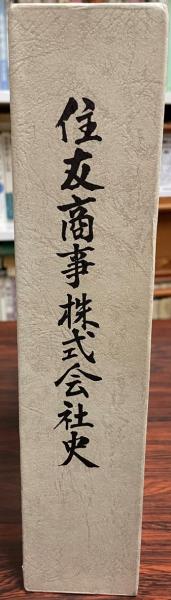 住友商事株式会社史